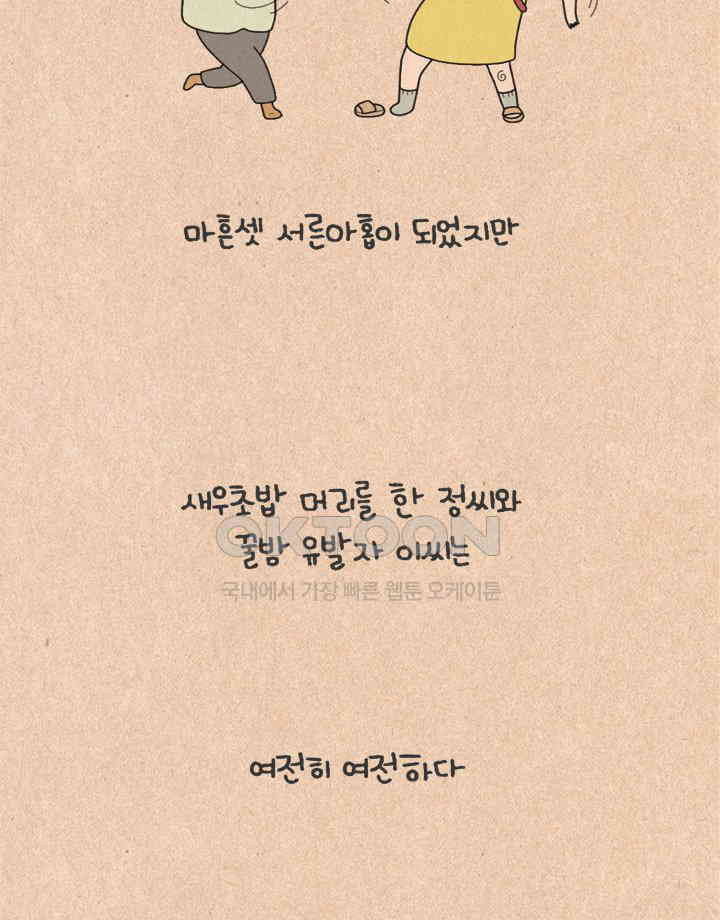 마흔셋 서른아홉이 되었지만
새우초밥 머리를 한 정씨와
OKTOON
꿀밤 유발자 이씨는
국내에서 가장 빠른 웹툰 오케이툰
여전히 여전하다